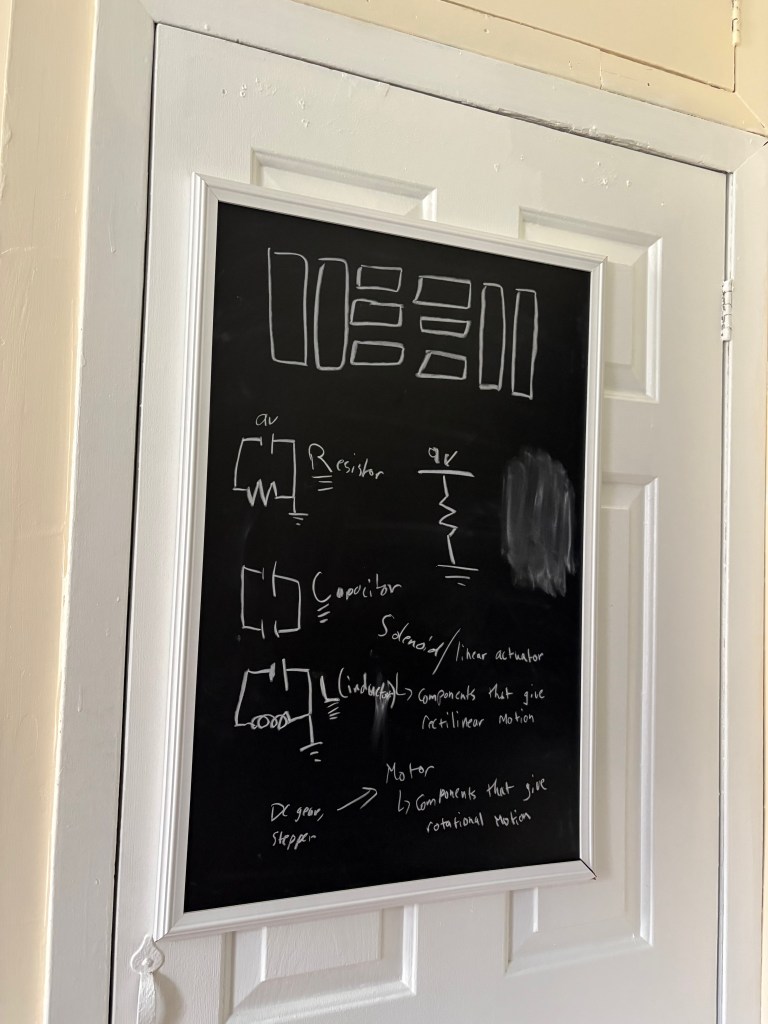 9v
Resistor
9V
Capacitor
Solenoid/linear actuator
↳ Components that give
rectilinear Motion
L(inductor)
Motor
↳ Components that give
rotational Motion
DC gear,
stepper